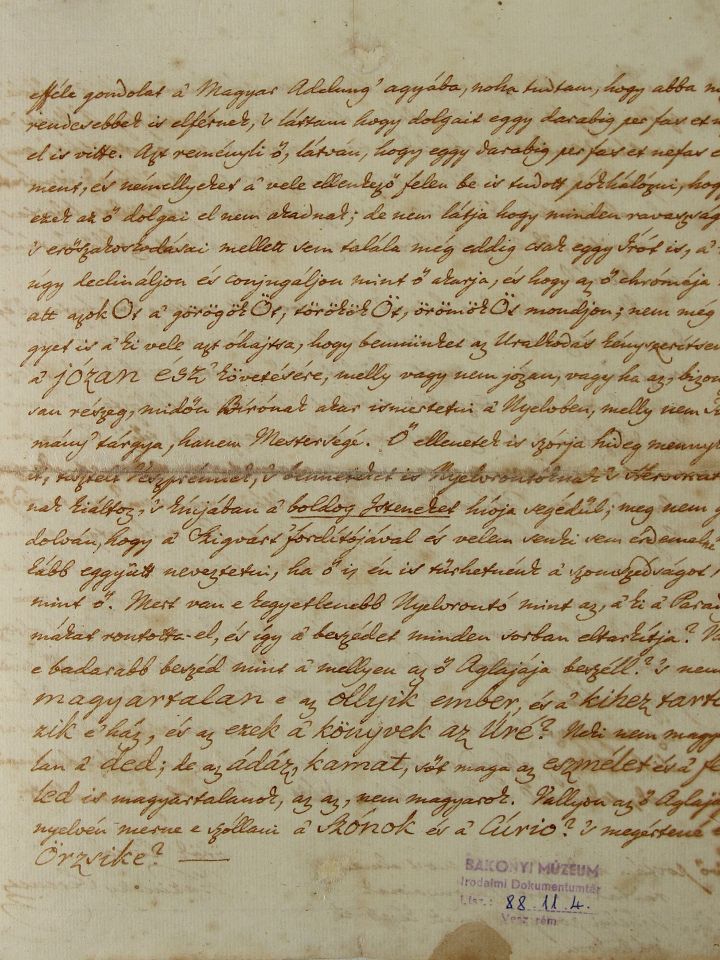 efféle gondolat a' Magyar Adelung' agyába, noha tudtam, hogy abba
rendesebbek is elférnek, 's láttam hogy dolgait eggy darabig per fas et
el is vitte. Azt reményli ő, látván, hogy eggy darabig per fas et nefas
ment, és némellyeket a' vele ellenkező felen be is tudott pókhálózni,
ezek az ő dolgai el nem akadnak; de nem látja hogy minden
's erőszakoskodásai mellett sem talála még eddig csak eggy Írót is, a'
úgy declináljon és conjugáljon mint ő akarja, és hogy az ő chrómája
att azokOt a' görögökÖt, törökökÖt, örömökÖt mondjon; nem még
gyet is a' ki vele azt óhajtsa, hogy bennünket az Uralkodás
a' józan ész' követésére, melly vagy nem józan, vagy ha az,
san részeg, midőn Bírónak akar ismertetni a' Nyelvben, melly nem
mány' tárgya, hanem Mesterségé. Ő ellenetek is szórja hideg
it, tisztelt Veszprémnek, 's bennünket is Nyelvrontóknak 's
nak kiáltoz, 's kínjában a' boldog Isteneket hívja segédül; meg nem
dolván, hogy a' Zigvárt' fordítójával és velem senki sem
kább eggyütt neveztetni, ha ő is én is tűrhetnénk a' szomszédságot
mint ő. Mert van e kegyetlenebb Nyelvrontó mint az, a' ki a'
mákat rontotta-el, és így a' beszédet minden sorban eltarkítja?
e badarabb beszéd mint a' mellyen az ő Aglajája beszéll? 's nem
magyartalan e az ollyik ember, és a' kihez
zik e' ház, és az ezek a' könyvek az Úré? Neki nem
lan a' ded; de az ádáz, kamat, sőt maga az eszmélet és a'
led is magyartalanok, az az, nem magyarok. Vallyon az ő
nyelvén merne e szóllani a' Szónok és a' Cúrio? 's megértené
Örzsike? —
BAKONYI MÚZEUM
Irodalmi Dokumentumtár
l.sz.: 88.11.4.
Veszprém